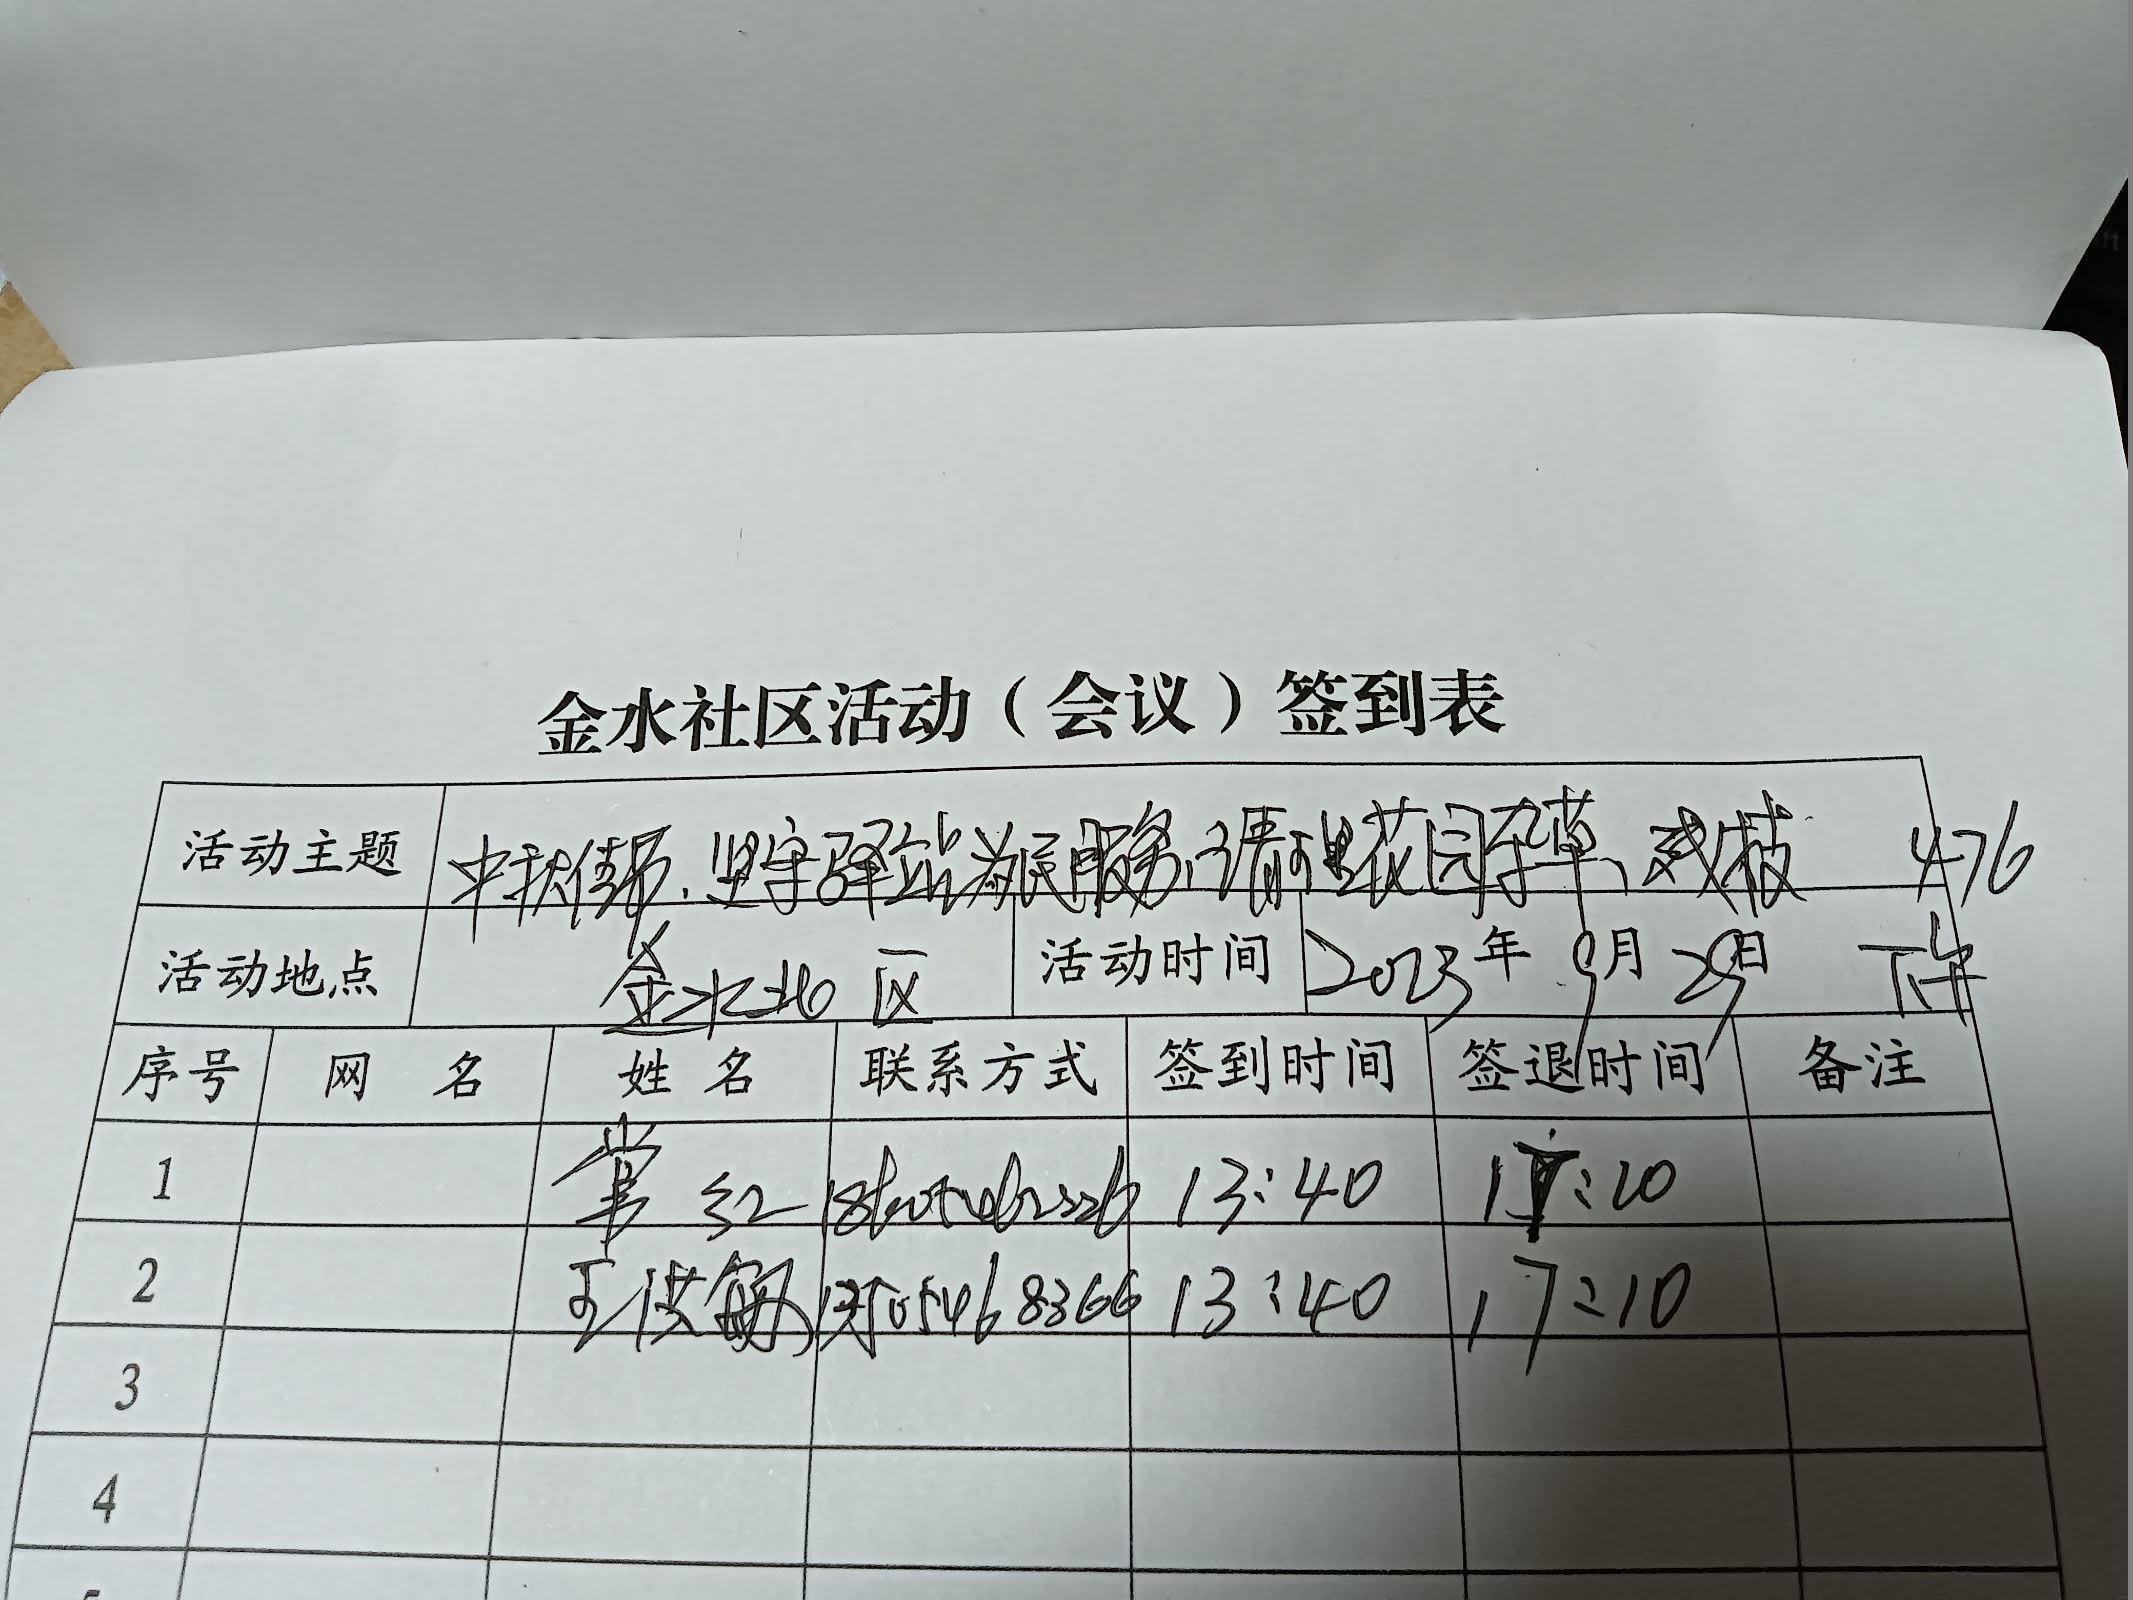 金水社区活动（会议）签到表
活动主题 中秋佳节、坚守驿站为民服务、清理花园杂草、残枝 476
活动地点 金水北区 活动时间 2023年9月29日 下午
序号 网 名 姓 名 联系方式 签到时间 签退时间 备注
1 常红 13:40 17:10
2 13:40 17:10
3
4
5